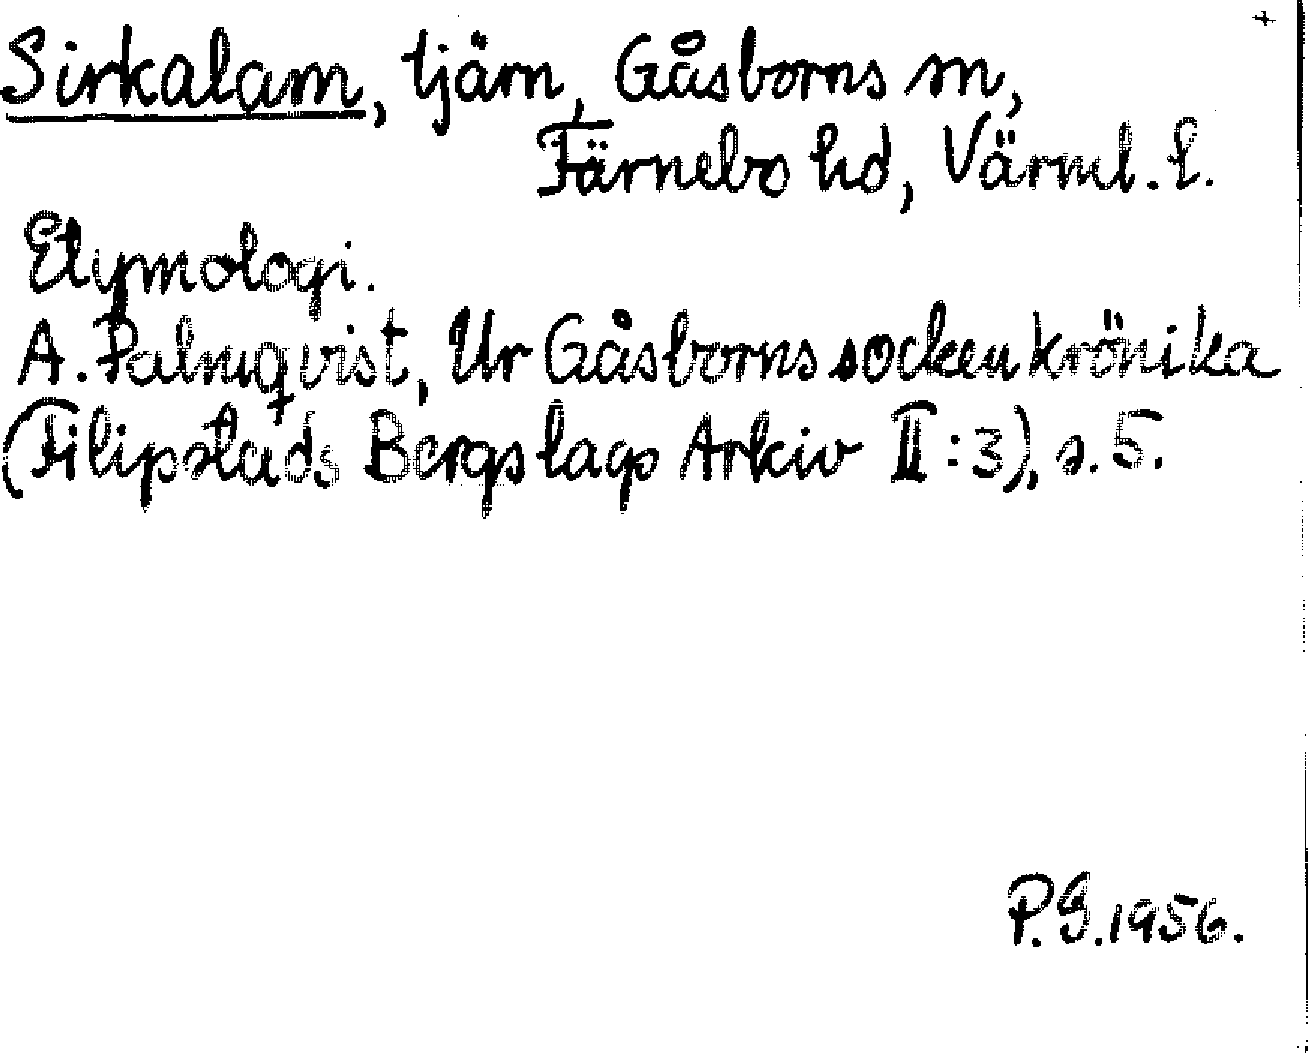 +
Sirkalam, tjärn, Gåsborns sn,
Färnebo hd, Värml. l.
Etymologi.
A. Palmqvist, Ur Gåsborns sockenkrönika
(Filipstads Bergslags Arkiv II:3), s. 5.
P.G. 1956.